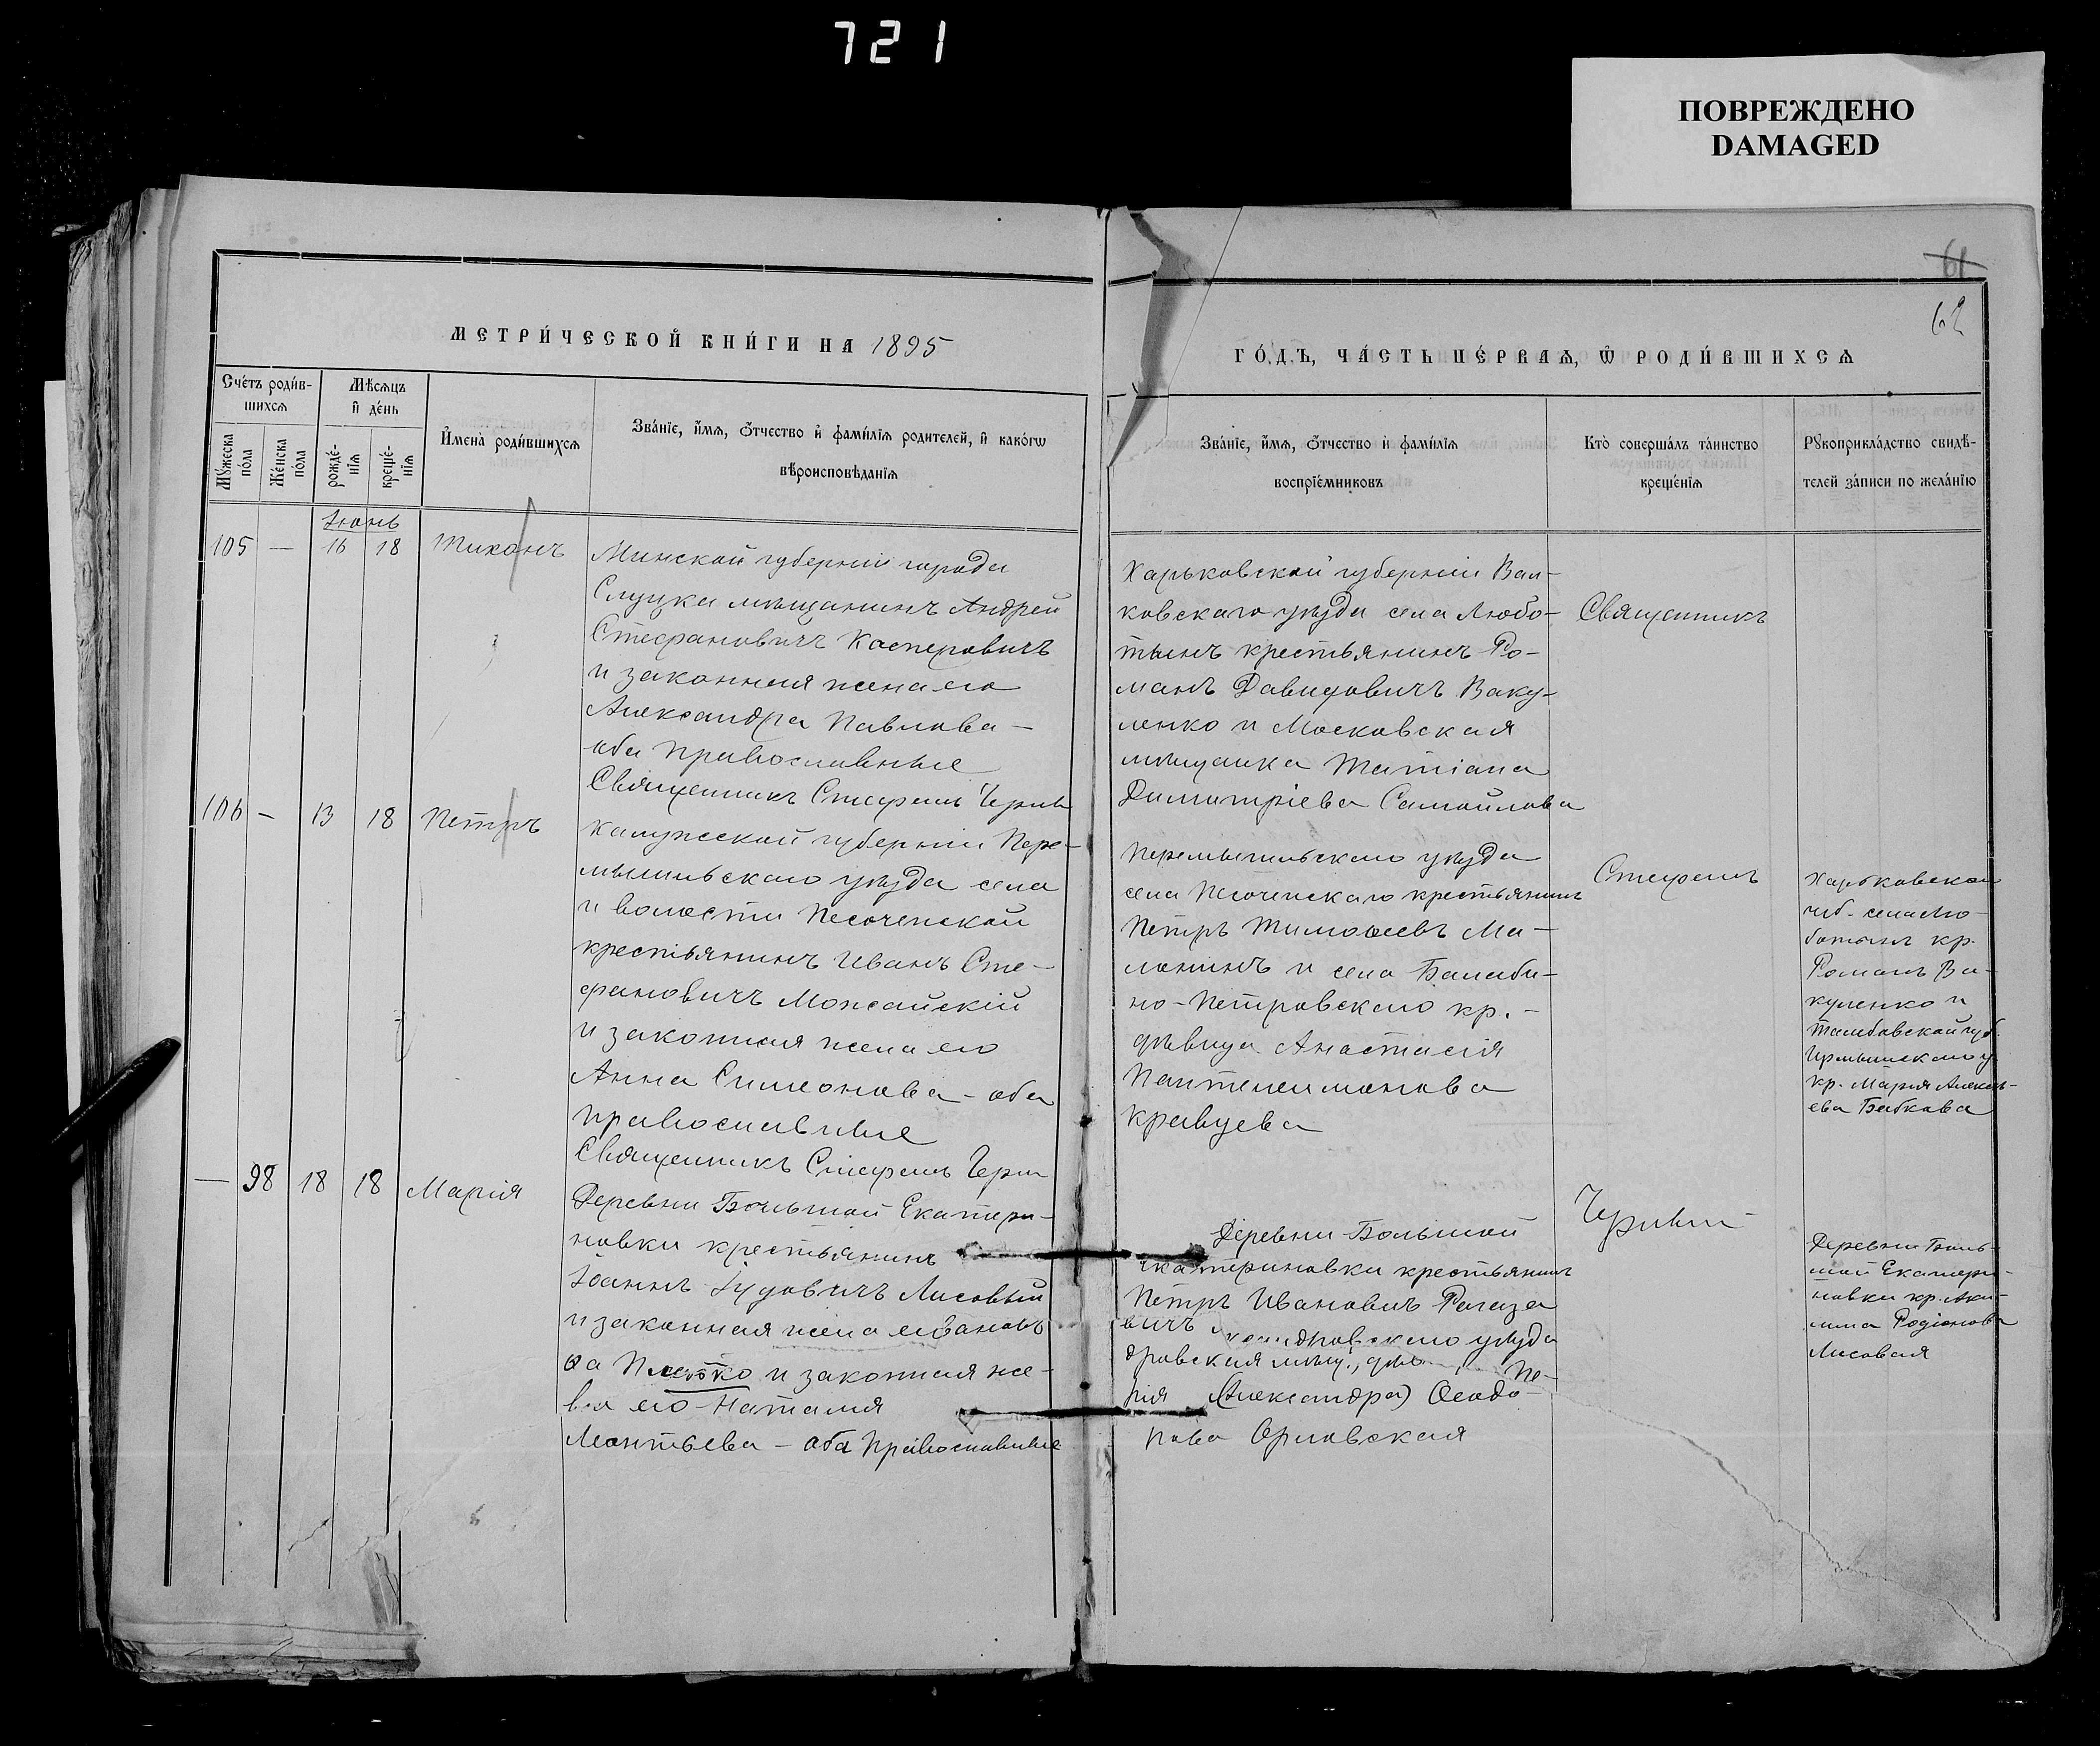 721
ПОВРЕЖДЕНО
DAMAGED
61
62
МЕТРИ́ЧЕСКОЙ КНИ́ГИ НА 1895
ГО́ДЪ, ЧА́СТЬ ПЕ́РВАѦ, Ѿ РОДИ́ВШИХСѦ
Сче́тъ роди́в-
шихсѧ
Мѣ́сѧцъ
и҆ де́нь
Мꙋ́жеска
по́ла
Же́нска
по́ла
рожде́-
нїѧ
креще́-
нїѧ
И҆мена̀ роди́вшихсѧ
Зва́нїе, и҆́мѧ, ѻ҆́тчество и҆ фамі́лїѧ родителей, и҆ како́гѡ
вѣроисповѣ́данїѧ
Зва́нїе, и҆́мѧ, ѻ҆́тчество и҆ фамі́лїѧ
воспрїе́мниковъ
Кто̀ соверша́лъ та́инство
креще́нїѧ
Рꙋкоприкла́дство свидѣ́-
телей за́писи по жела́нїю
Іюнь
105 — 16 18 Тихонъ
Минской губерніи города
Слуцка мѣщанинъ Андрей
Стефановичъ Касперовичъ
и законная жена его
Александра Павлова —
оба православные
Священникъ Стефанъ
Харьковской губерніи Вал-
ковскаго уѣзда села Любо-
тынъ крестьянинъ Ро-
манъ Давидовичъ Ваку-
ленко и Московская
мѣщанка Татіана
Димитріева Самойлова
Священникъ
106 — 13 18 Петръ
Калужской губерніи Пере-
мышльскаго уѣзда села
и волости Песоченской
крестьянинъ Иванъ Сте-
фановичъ Можайскій
и законная жена его
Анна Симеонова — оба
православные
Священникъ Стефанъ
Перемышльскаго уѣзда
села Песоченскаго крестьянинъ
Петръ Тимоѳеевъ Ма-
лонинъ и села Балаби-
но-Петровскаго кр. -
дѣвица Анастасія
Пантелеимонова
Кравцева
Стефанъ
Харьковской
губ. села Лю-
ботынъ кр.
Романъ Ва-
куленко и
Тамбовской губ.
кр. Марія Алексѣ-
ева Бабкова
— 98 18 18 Марія
Деревни Большой Екатери-
новки крестьянинъ
Іоаннъ Іудовичъ Лисовый
и законная жена его
и законная же-
его Наталія
Леонтьева — оба православные
Деревни Большой
Екатериновки крестьянинъ
Петръ Ивановичъ
вичъ уѣзда
дровская мѣщ.,
рія (Александра) Ѳеодо-
рова Орловская
Деревни Боль-
шой Екатери-
новки кр. Аки-
лина Родіонова
Лисовая